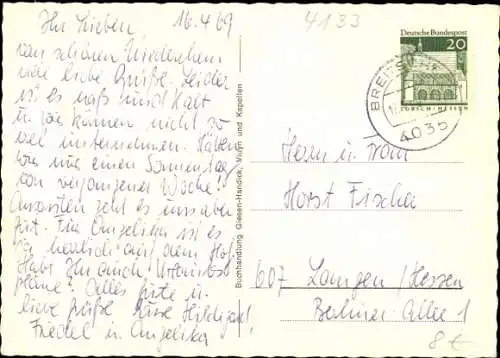 Ihr Lieben 16.4.69
vom schönen Niederrhein
viele liebe Grüße. Leider
ist es naß und kalt
u. wir können nicht so
viel unternehmen. Hätten
wir nur einen Sonnentag
von vergangener Woche!
Ansonsten geht es uns aber
gut. Für Angelika ist es
ja herrlich auf dem Hof.
Habt Ihr auch Urlaubs-
pläne? Alles Gute u.
liebe Grüße Eure Hildegard
Friedel u. Angelika
Buchhandlung Giesen-Handick, Wulyn und Kapellen
4133
Deutsche Bundespost
20
LORSCH/HESSEN
BREITSC
4035
Herrn u. Frau
Horst Fischer
607 Langen/Hessen
Berliner Allee 1
8€